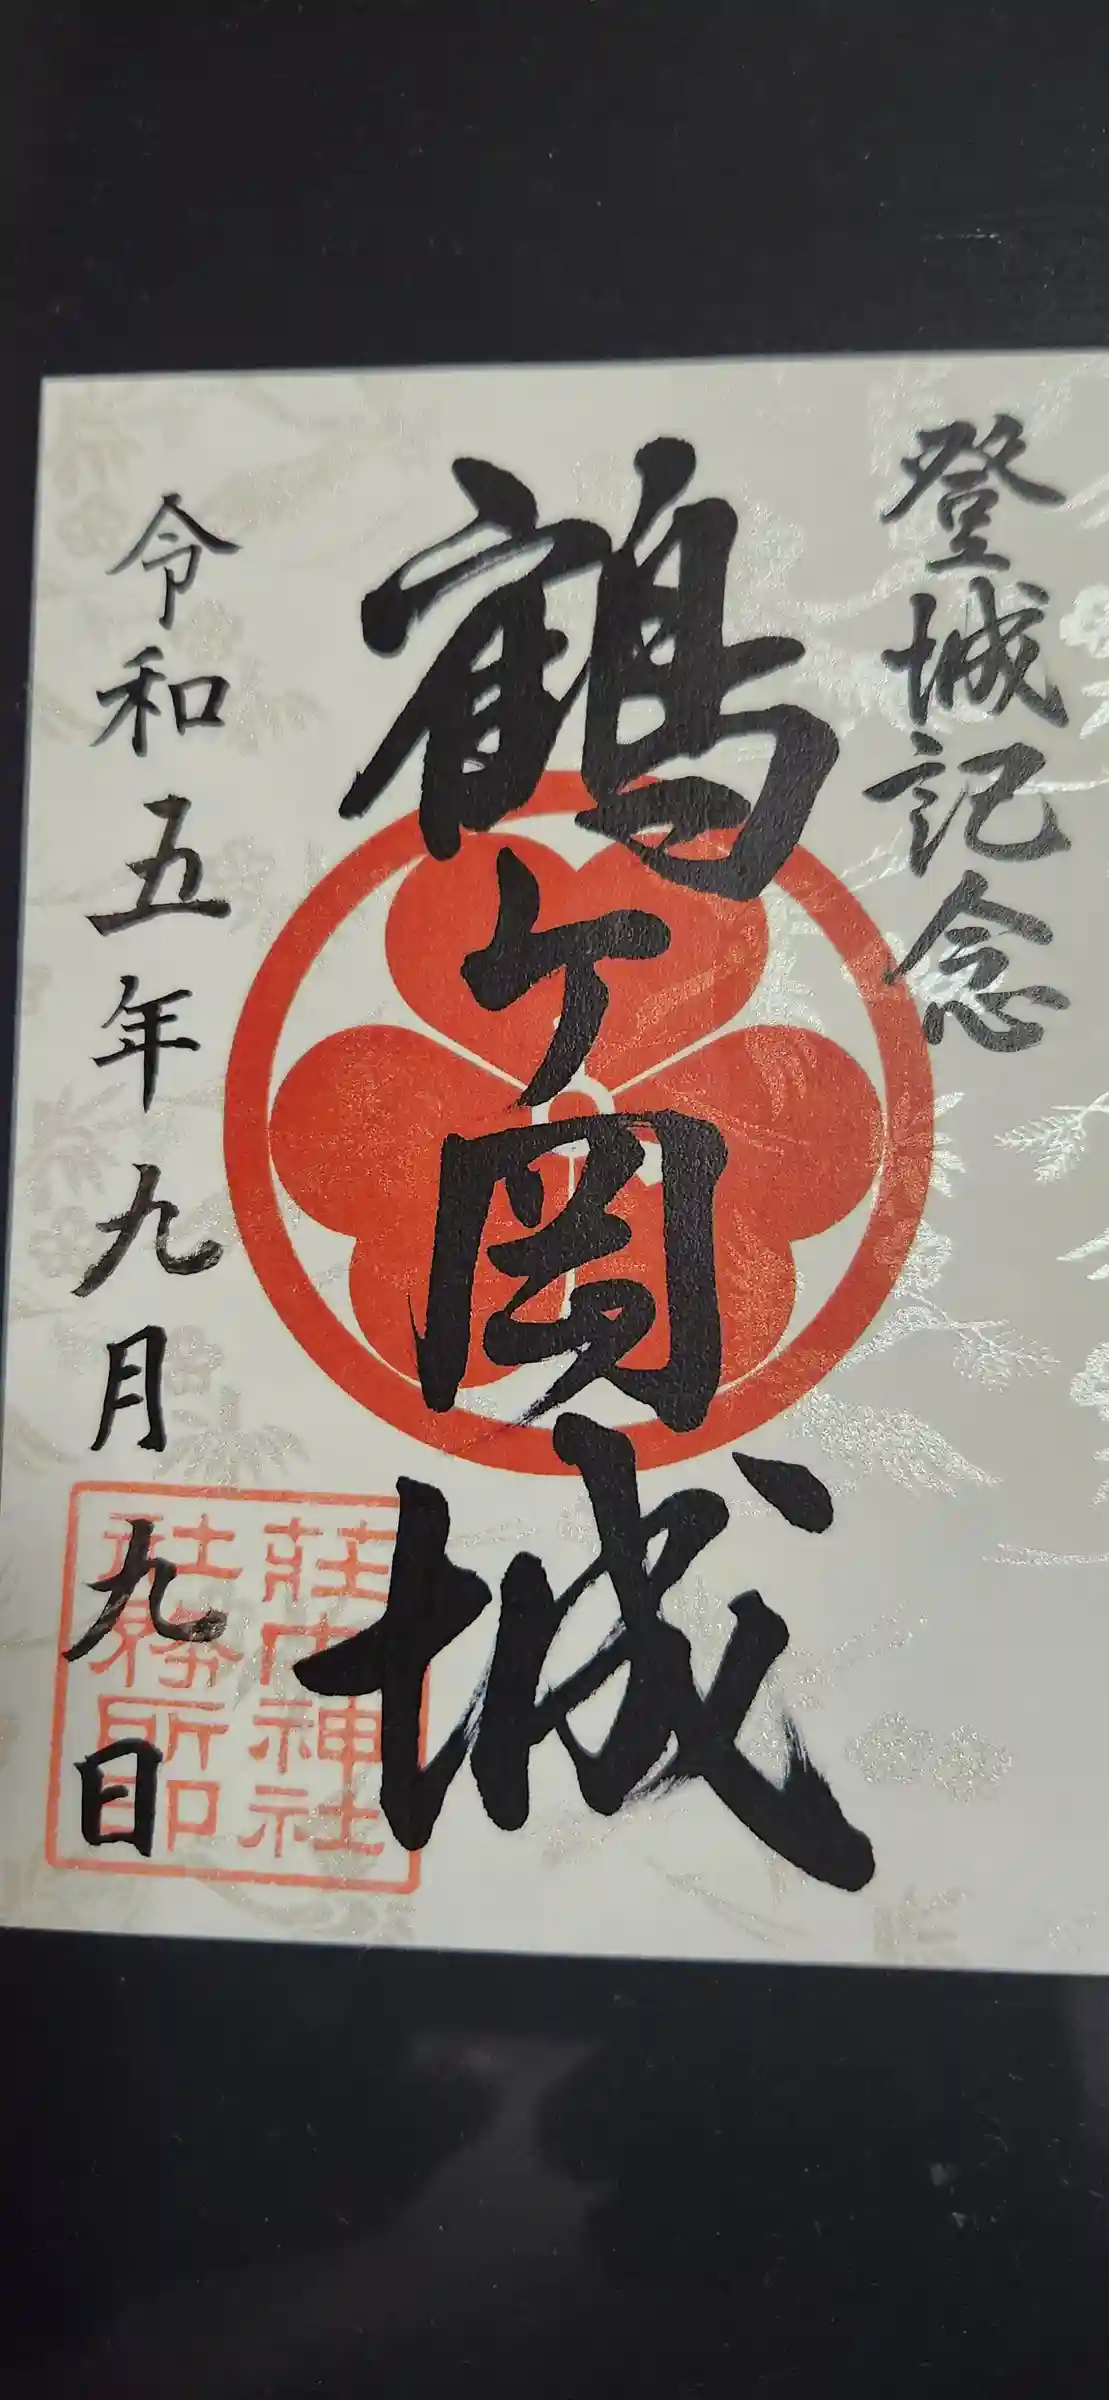 登城記念
鶴ケ岡城
令和五年九月九日
荘内神社
社務所印